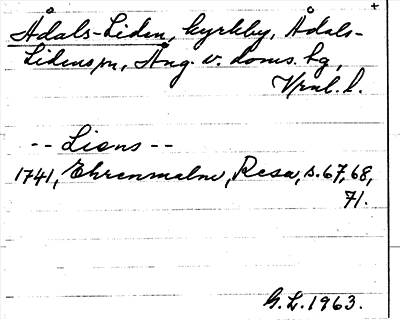 +
Ådals-Liden, kyrkby, Ådals-
Lidens sn, Ång. v. doms. tg,
Vrnl. l.
-- Liens --
1741, Ehrenmalm, Resa, s. 67, 68,
71.
G. L. 1963.